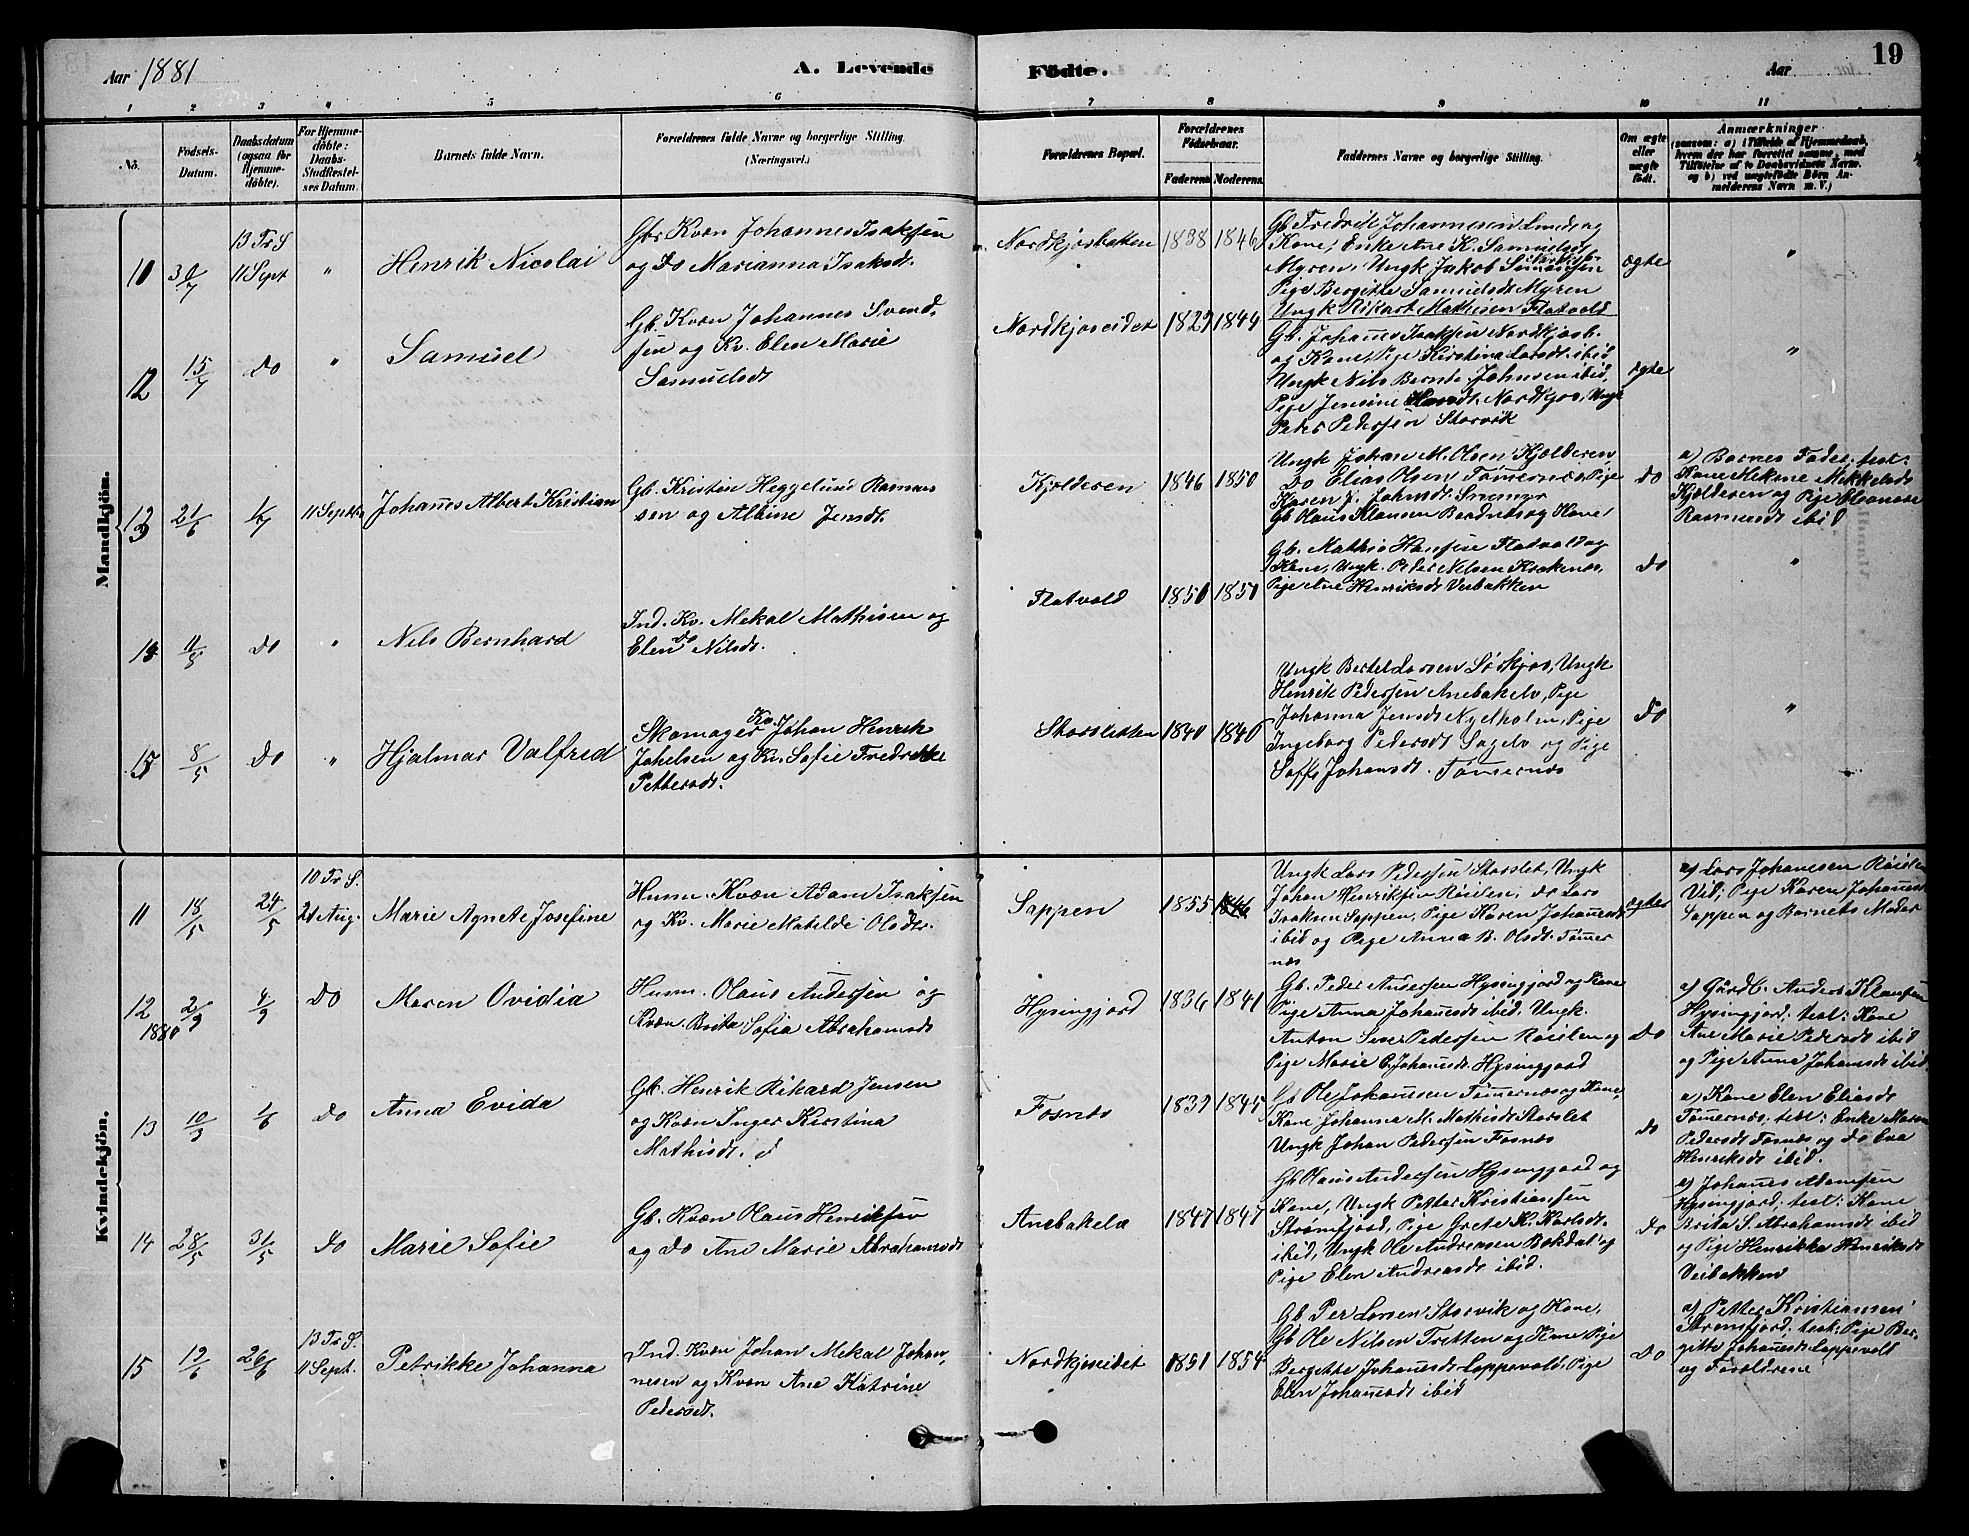 Aar 1881
A. Levende Födte.
Aar
19
1 2 3 4 5 6 7 8 9 10 11
No.
Födsels-Datum.
Daabsdatum (ogsaa for Hjemmedöbte).
For Hjemmedöbte: Daabs-Stadfæstelses Datum.
Barnets fulde Navn.
Forældrenes fulde Navne og borgerlige Stilling. (Næringsvei.)
Forældrenes Bopæl.
Forældrenes Födselsaar.
Faderens. Moderens.
Faddernes Navne og borgerlige Stilling.
Om ægte eller uægte födt.
Anmærkninger
(saasom: a) i Tilfælde af Hjemmedaab, hvem der har forrettet samme, med Tilföielse af to Daabsvidners Navne. og b) ved uægtefödte Börn Anmelderens Navn m. V.)
Mandkjön.
10
30/7
13 Tr S
11 Sept
"
Henrik Nicolai
Gbr Kvæn Johannes Isaksen
og Do Marianna Isaksd.
Nordkjosbotten
1838 1846
Gb Fredrik Johannesen Lund og
Kone, Enke Ane K. Samuelsd
Myren, Ungk Jakob Simonsen
Pige Bergitte Samuelsdt Myren
Ungk Rikart Mathisen Flatvold
ægte
"
12
15/7
Do
"
Samuel
Gb. Kvæn Johannes Svend-
sen og Kv. Elen Marie
Samuelsdt
Nordkjoseidet
1829 1844
Gb. Johannes Isaksen Nordkjosb.
og Kone, Pige Kirstina Larsdt ibid
Ungk Nils Bernt Johnsen ibid,
Pige Jensine Hansdt. Nordkjos, Ungk
Peder Pedersen Storvik
ægte
"
13
21/6
1/7
11 Septbr
Johannes Albert Kristian
Gb. Kristen Heggelund Rasmus
sen og Albine Jensdt.
Kjelderen
1846 1850
Ungk Johan M. Olsen Kjelderen
Do Elias Olsen Tømernes, Pige
Karen J. Johnsdt.
Gb Olaus Klausen og Kone
Do
a) Barnets Fader; test:
Kone Mekkelsdt
Kjelderen og Pige Eleanora
Rasmusdt ibid
14
11/8
Do
"
Nils Bernhard
Ind. Kv. Mekal Mathisen og
Do
Elen Nilsdt.
Flatvold
1850 1850
Gb. Mathis Hansen Flatvold og
Kone, Ungk. Peder Nilsen Krakenes,
Pige Ane Henriksdt Veibakken
Do
"
15
8/5
Do
"
Hjalmar Valfred
Skomager Kv. Johan Henrik
Johelsen og Kv. Sofie Fredrikke
Pettersdt.
Storsletten
1840 1840
Ungk Bertel Larsen Sørkjos, Ungk
Henrik Pedersen Anebakelv, Pige
Johanna Jensdt Nyelholm, Pige
Ingeborg Pedersdt Sagelv og Pige
Soffi Johansdt. Tømernes
Do
"
Kvindekjön.
11
18/5
24/5
10 Tr S.
21 Aug.
Marie Agnete Josefine
Husm. Kvæn Adam Isaksen
og Kv. Marie Matilde Olsdtr.
Sappen
1855 1846
Ungk Lars Pedersen Storslet, Ungk
Johan Henriksen Røielen, Do Lars
Isaksen Sappen, Pige Karen Johannesd
ibid og Pige Anna B. Olsdt. Tømer
nes
ægte
a) Lars Johanesen Røielen
Vid; Pige Karen Johannesd
Sappen og Barnets Moder
12
2/9
1880
4/9
Do
Maren Ovidia
Husm. Olaus Andersen og
Kvæn Brita Sofia Abrahamsdt
Hysingjord
1836 1841
Gb. Peder Andersen Hysingjord og Kone
Pige Anna Johannesdt ibid, Ungk.
Anton Sever Pedersen Røielen og
Pige Marie B. Johannesdt. Hysingjord
Do
a) Gårdb. Anders Klausen
Hysingjord; test: Kone
Ane Marie Pedersdt ibid
og Pige Anne Johansdt ibid
13
10/3
1/6
Do
Anna Evida
Gb. Henrik Rikard Jensen
og Kvæn Inger Kirstina
Mathisdt.
Fosnes
1839 1845
Gb Ole Johannesen Tømernes og Kone,
Kone Johanna M. Mathisdt Storslet
Ungk Johan Pedersen Fosnes
Do
a) Kone Elen Eliasdt
Tømernes, test: Enke Maren
Pedersdt Fosnes og Do Eva
Henriksdt ibid.
14
28/5
31/5
Do
Marie Sofie
Gb. Kvæn Olaus Henriksen
og Do Ane Marie Abrahamsdt
Anebakelv
1847 1847
Gb Olaus Andersen Hysingjord og
Kone, Ungk Petter Kristiansen
Strømfjord, Pige Grete K. Karlsdt.
ibid, Ungk Ole Andreasen Bokdal og
Pige Elen Andreasdt ibid.
Do
a) Johannes Adamsen
Hysingjord; test: Kone
Brita S. Abrahamsdt ibid
og Pige Henrikka Henriksdt
Veibakken
15
12/6
26/6
13 Tr S.
11 Sept.
Petrikke Johanna
Ind. Kvæn Johan Mekal Johan-
nesen og Kvæn Ane Katrine
Pedersdt.
Nordkjoseidet
1851 1854
Gb Per Larsen Storvik og Kone,
Gb Ole Nilsen Tretten og Kone, Pige
Bergitte Johannesdt Loppevold, Pige
Elen Johannesdt ibid
Do
a) Petter Kristiansen
Strømfjord; test: Pige Ber-
gitte Johannesdt Loppevold
og Forældrene